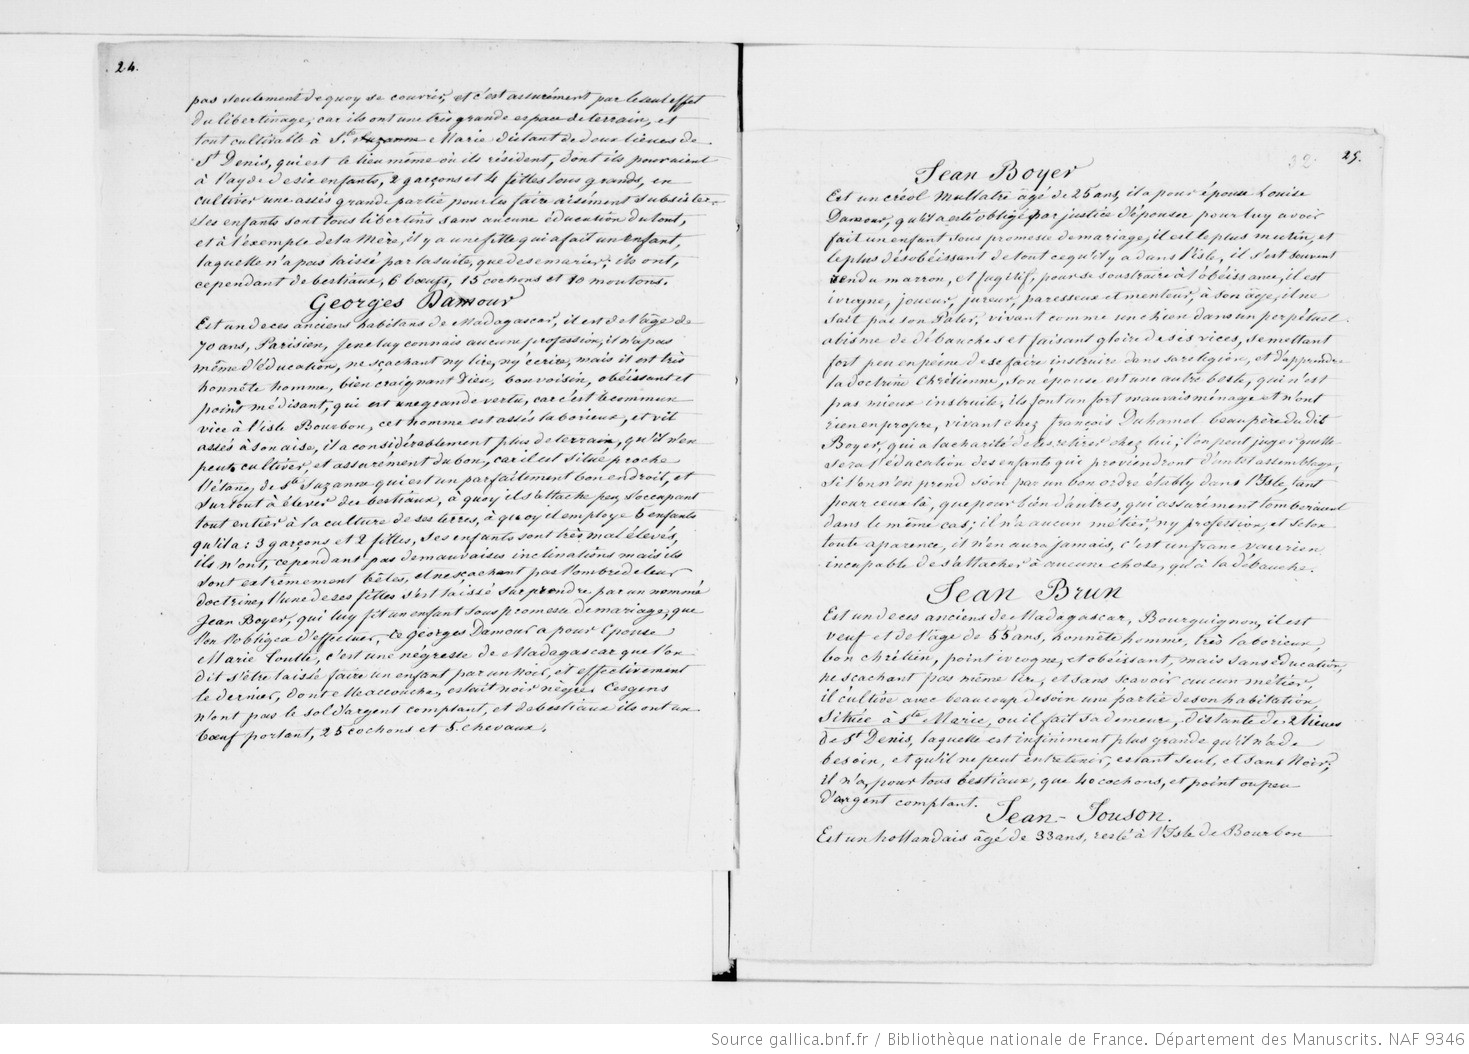 24.
pas seulement de quoy se couvrir, et c'est assurément par le seul effet
du libertinage, car ils ont une très grande espace de terrain, et
tout cultivable à Ste Suzanne Marie distant de deux lieues de
St Denis, qui est le lieu même où ils résident, dont ils pouraient
à l'ayde de six enfants, 2 garçons et 4 filles tous grands, en
cultiver une assés grande partie pour les faire aisément subsister
Ses enfants sont tous libertins sans aucune éducation du tout,
et à l'exemple de la Mère, il y a une fille qui a fait un enfant,
laquelle n'a pas laissé par la suite, que de se marier; ils ont,
cependant de bestiaux, 6 bœufs, 15 cochons et 10 moutons.
Georges Damour
Est un de ces anciens habitans de Madagascar, il est de l'âge de
70 ans, Parisien, je ne luy connais aucune profession, il n'a pas
même d'éducation, ne sçachant ny lire, ny écrire, mais il est très
honnête homme, bien craignant Dieu, bon voisin, obéissant et
point médisant, qui est une grande vertu, car c'est le commun
vice à l'isle Bourbon, cet homme est assés laborieux, et vit
assés à son aise, il a considérablement plus de terrain, qu'il n'en
peut cultiver, et assurément du bon, car il est situé proche
l'étang, de Ste Suzanne qui est un parfaitement bon endroit, et
surtout à élever des bestiaux, à quoy il s'attache peu, s'occupant
tout entier à la culture de ses terres, à quoy il employe 5 enfants
qu'il a: 3 garçons et 2 filles, ses enfants sont très mal élevés,
ils n'ont, cependant pas de mauvaises inclinations mais ils
sont extrêmement bêtes, et ne sçachant pas l'ombre de leur
doctrine, l'une de ses filles s'est laissé surprendre par un nommé
Jean Boyer, qui luy fit un enfant sous promesse de mariage, que
l'on l'obligea d'effectuer, ce Georges Damour a pour Epouse
Marie Toutte, c'est une négresse de Madagascar que l'on
dit s'être laissé faire un enfant par un Noir, et effectivement
le dernier, dont elle accoucha, estait noir nègre. Ces gens
n'ont pas le sol d'argent comptant, et de bestiaux ils ont un
bœuf portant, 25 cochons et 5 chevaux.
32
25.
Jean Boyer
Est un créol Mullatre âgé de 25 ans, il a pour épouse Louise
Damour, qu'il a esté obligé par justice d'épouser pour luy avoir
fait un enfant sous promesse de mariage, il est le plus mutin, et
le plus désobéissant de tout ce qu'il y a dans l'isle, il s'est souvent
rendu marron, et fugitif, pour se soustraire à l'obéissance, il est
ivrogne, joueur, jureur, paresseux et menteur, à son âge, il ne
sait pas son Pater, vivant comme un chien dans un perpétuel
abisme de débauches et faisant gloire de ses vices, se mettant
fort peu en peine de se faire instruire dans sa religion, et d'apprendre
la doctrine Chrétienne, son épouse est une autre beste, qui n'est
pas mieux instruite, ils font un fort mauvais ménage et n'ont
rien en propre, vivant chez françois Duhamel beau père du dit
Boyer, qui a la charité de les retirer chez lui; l'on peut juger quelle
sera l'éducation des enfants qui proviendront d'un tel assemblage,
si l'on n'en prend soin par un bon ordre étably dans l'Isle, tant
pour ceux là, que pour bien d'autres, qui assurément tomberaient
dans le même cas; il n'a aucun métier, ny profession, et selon
toute aparence, il n'en aura jamais, c'est un franc vaurien,
incapable de s'attacher à aucune chose, qu'à la débauche.
Jean Brun
Est un de ces anciens de Madagascar, Bourguignon, il est
veuf et de l'âge de 55 ans, honnête homme, très laborieux,
bon chrétien, point ivrogne, et obéissant, mais sans éducation,
ne sçachant pas même lire, et sans scavoir aucun métier,
il cultive avec beaucoup de soin une partie de son habitation,
située à Ste Marie, ou il fait sa demeure, distante de 2 lieues
de St Denis, laquelle est infiniment plus grande qu'il n'a de
besoin, et qu'il ne peut entretenir, estant seul, et sans Noir;
il n'a, pour tous bestiaux, que 40 cochons, et point ou peu
d'argent comptant.
Jean-Jouson.
Est un hollandais âgé de 33 ans, resté à l'Isle de Bourbon
Source gallica.bnf.fr / Bibliothèque nationale de France. Département des Manuscrits. NAF 9346